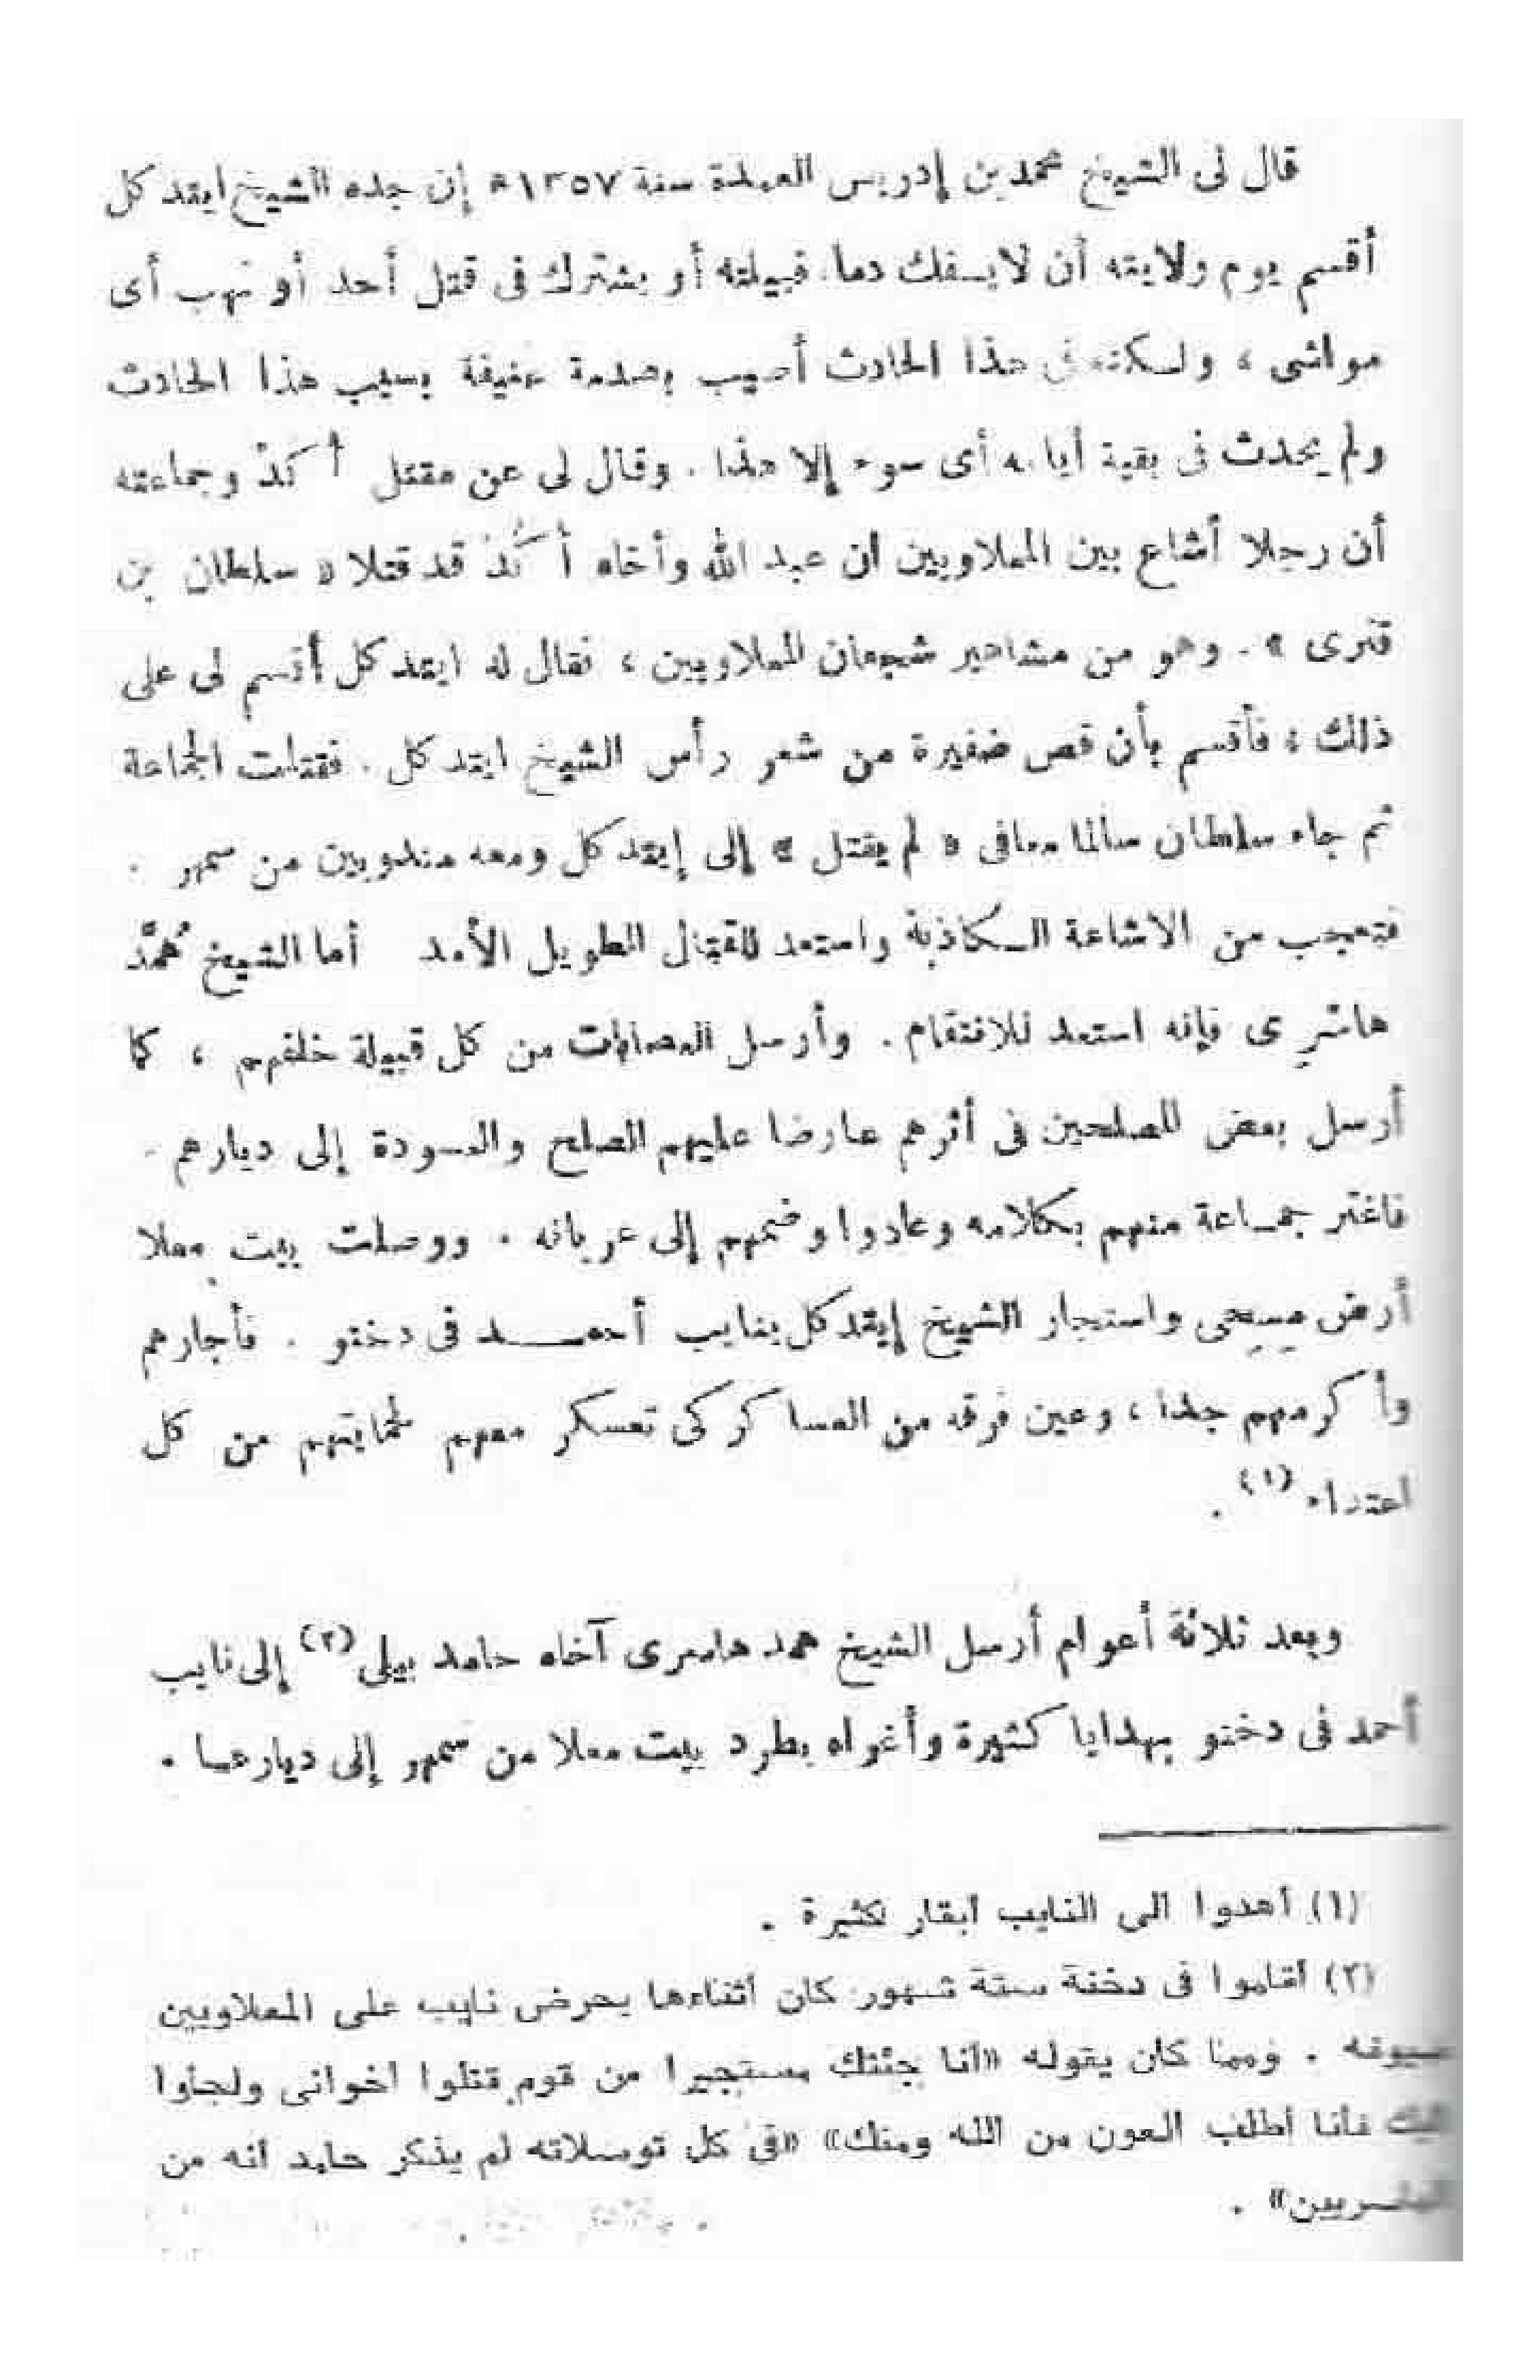 قال لى الشيخ محمد بن إدريس العمدة سنة ١٣٥٧ﻫ إن جده الشيخ ايتد كل
أقسم يوم ولايته أن لا يسفك دماء قبيلته أو يشترك فى قتل أحد أو نهب أى
مواشى ، ولكنه فى هذا الحادث أصيب بصدمة عنيفة بسبب هذا الحادث
ولم يحدث فى بقية أيامه أى سوء إلا هذا . وقال لى عن مقتل أكدْ وجماعته
أن رجلا أشاع بين المعلاويين ان عبد الله وأخاه أكُدْ قد قتلا « سلطان بن
قنرى » . وهو من مشاهير شجعان المعلاويين ، فقال له ايتد كل أقسم لى على
ذلك ؛ فأقسم بأن قص ضفيرة من شعر رأس الشيخ ايتد كل . فقتلت الجماعة
ثم جاء سلطان سالما معافى « لم يقتل » إلى إيتد كل ومعه مندوبين من سمهر .
فتعجب من الاشاعة الكاذبة واستعد للقتال الطويل الأمد أما الشيخ مُحمَّد
هاشرى فإنه استعد للانتقام . وأرسل العصابات من كل قبيلة خلفهم ، كما
أرسل بعض المصلحين فى أثرهم عارضا عليهم الصلح والعودة إلى ديارهم .
فاغتر جماعة منهم بكلامه وعادوا وضمهم إلى عربانه . ووصلت بيت معلا
أرض مسحى واستجار الشيخ إيتد كل بنايب أحمد فى دخنو . فأجارهم
وأكرمهم جدا ، وعين فرقه من العساكر كى تعسكر معهم لحمايتهم من كل
اعتداء (١) .
وبعد ثلاثة أعوام أرسل الشيخ حمد هاسرى آخاه حامد بيلى (٢) إلى نايب
أحمد فى دخنو بهدايا كثيرة وأغراه بطرد بيت معلا من سمهر إلى ديارها .
(١) أهدوا الى النايب ابقار كثيرة .
(٢) أقاموا فى دخنة ستة شهور كان أثناءها يحرض نايب على المعلاويين
ضيوفه . ومما كان يقوله «أنا جئتك مستجيرا من قوم قتلوا اخوانى ولجأوا
اليك فأنا أطلب العون من الله ومنك» «فى كل توسلاته لم يذكر حامد انه من
الهاسريين» .